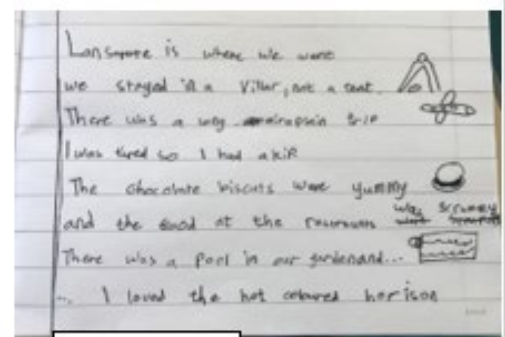 Lansarote is where we went
we stayed in a Villar, not a tent.
There was a long airaplain trip
I was tired so I had a kip
The chocolate biscuts were yummy
and the food at the was scrummy
There was a pool in our gardenand...
... I loved the hot coloured horison